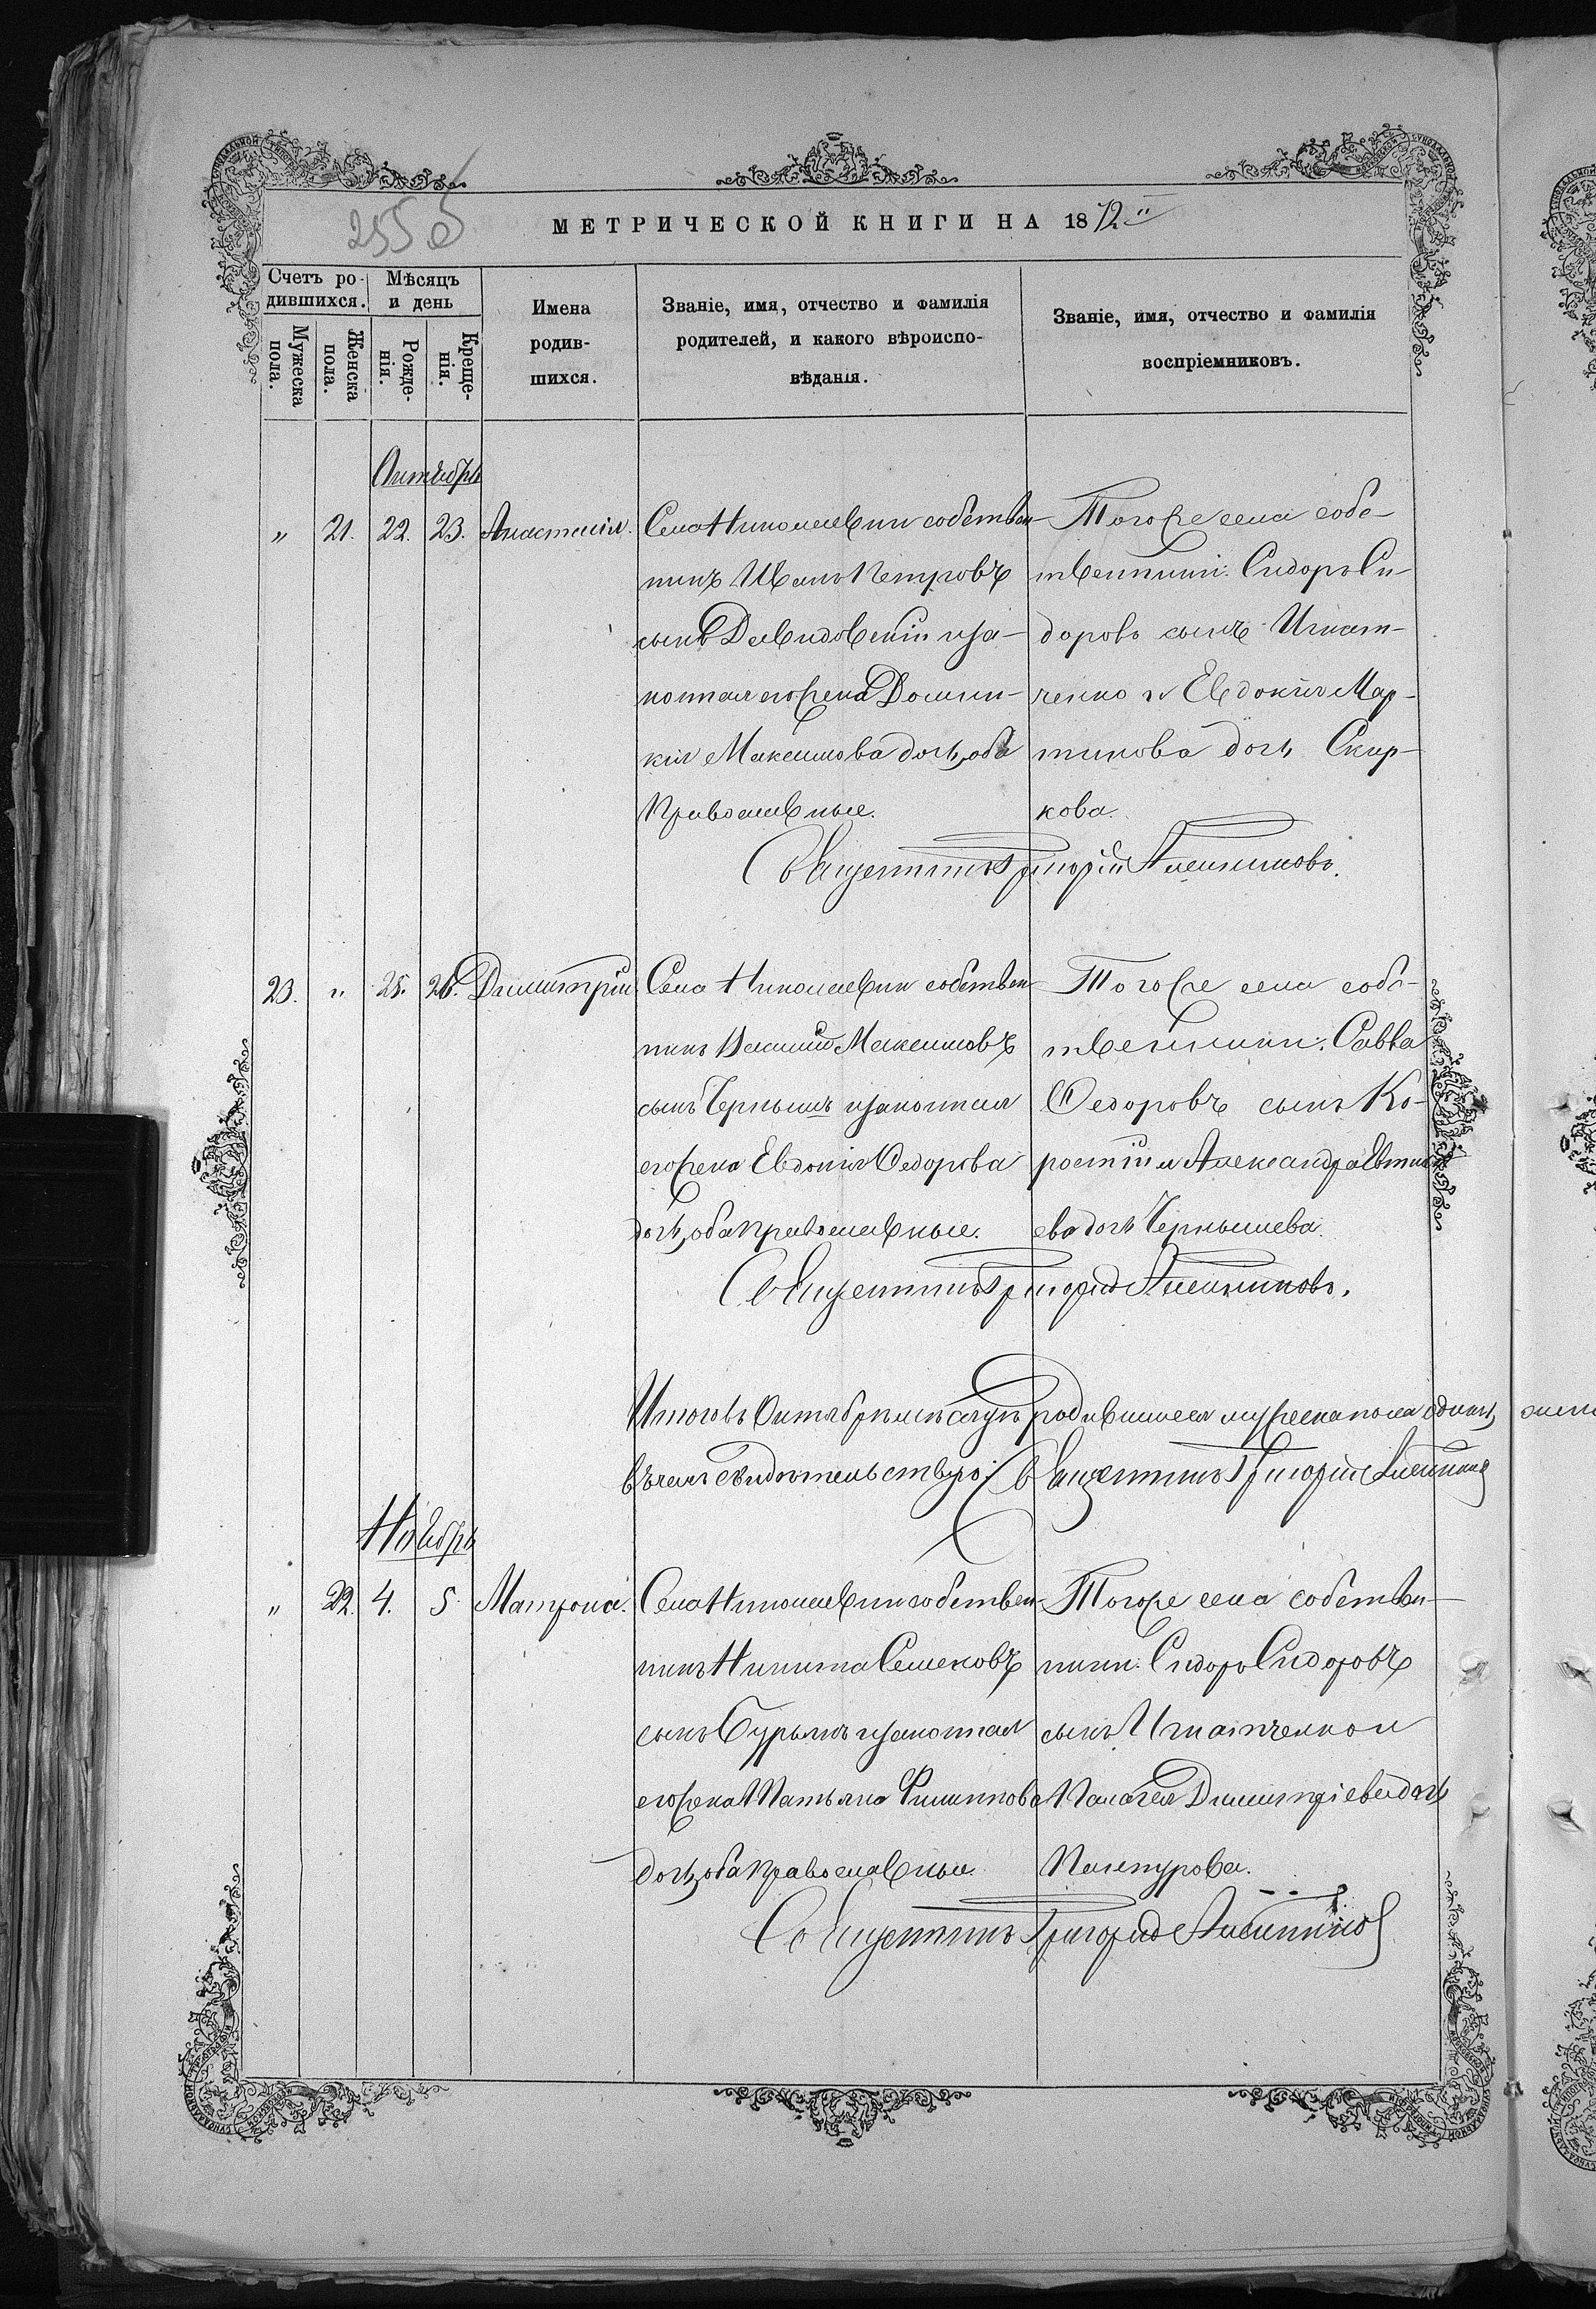 255 об
МЕТРИЧЕСКОЙ КНИГИ НА 1872й
Счетъ ро-
дившихся.
Мужеска
пола.
Женска
пола.
Мѣсяцъ
и день
Рожде-
нія.
Креще-
нія.
Имена
родив-
шихся.
Званіе, имя, отчество и фамилія
родителей, и какого вѣроиспо-
вѣданія.
Званіе, имя, отчество и фамилія
воспріемниковъ.
Октябрь
" 21. 22. 23. Анастасія.
Села Николаевки собствен-
никъ Иванъ Петровъ
сынъ Давидовскій и за-
конная его жена Домни-
кія Максимова дочь, оба
Православные.
Того же села собс-
твенники: Сидоръ Си-
доровъ сынъ Игнат-
ченко и Евдокія Мар-
тинова дочь Скар-
кова.
Священникъ Григорій
23. " 25. 26. Димитрій
Села Николаевки собствен-
никъ Василій Максимовъ
сынъ Чернышъ и законная
его жена Евдокія Ѳедорова
дочь, оба православные.
Того же села собс-
твенники: Савва
Ѳедоровъ сынъ Ко-
ростій и Александра
ева дочь Чернышева.
Священникъ Григорій
Итого въ Октябрѣ мѣсяцѣ родившихся мужеска пола одинъ,
въ чемъ свидѣтельствую: Священникъ Григорій
Ноябрь
" 22. 4. 5 Матрона.
Села Николаевки собствен-
никъ Никита Семеновъ
сынъ Бурымъ и законная
его жена Татьяна Филиппова
дочь, оба Православные.
Того же села собствен-
ники: Сидоръ Сидоровъ
сынъ Игнатченко и
Палагея Димитріева дочь
Священникъ Григорій